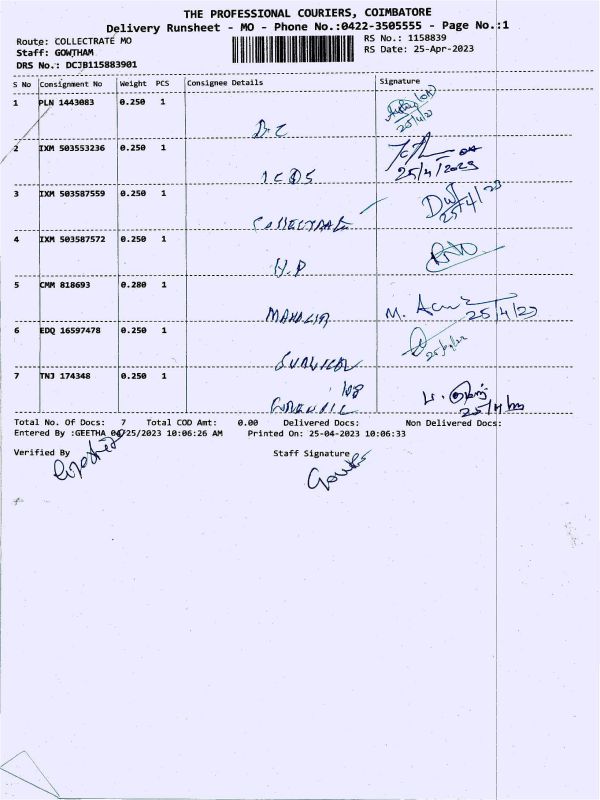 THE PROFESSIONAL COURIERS, COIMBATORE
Delivery Runsheet - MO - Phone No.:0422-3505555 - Page No.:1
Route: COLLECTRATE MO
RS No.: 1158839
Staff: GOWTHAM
RS Date: 25-Apr-2023
DRS No.: DCJB115883901
S No Consignment No Weight PCS Consignee Details Signature
1 PLN 1443083 0.250 1
2 IXM 503553236 0.250 1
25/4/2023
ICDS
3 IXM 503587559 0.250 1
25/4/23
COLLECTRATE
4 IXM 503587572 0.250 1
H.P
5 CMM 818693 0.280 1
M.
25/4/23
6 EDQ 16597478 0.250 1
7 TNJ 174348 0.250 1
Total No. Of Docs: 7 Total COD Amt: 0.00 Delivered Docs: Non Delivered Docs:
Entered By :GEETHA 04/25/2023 10:06:26 AM Printed On: 25-04-2023 10:06:33
Verified By Staff Signature